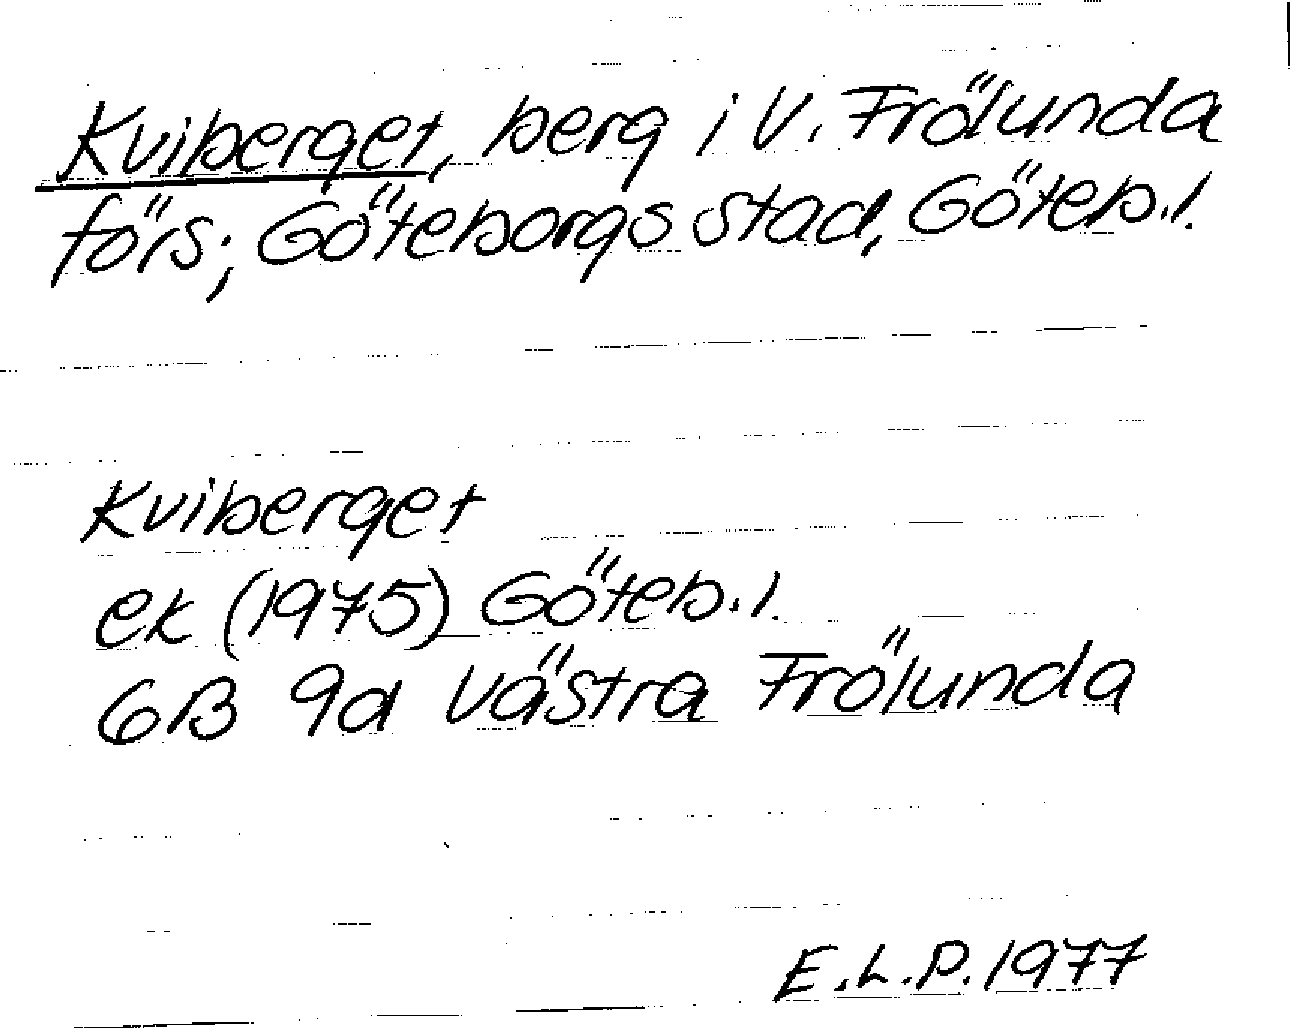 Kviberget, berg i V. Frölunda
förs; Göteborgs stad, Göteb.l.
Kviberget
ek (1975) Göteb.l.
6B 9d Västra Frölunda
E.L.P. 1977